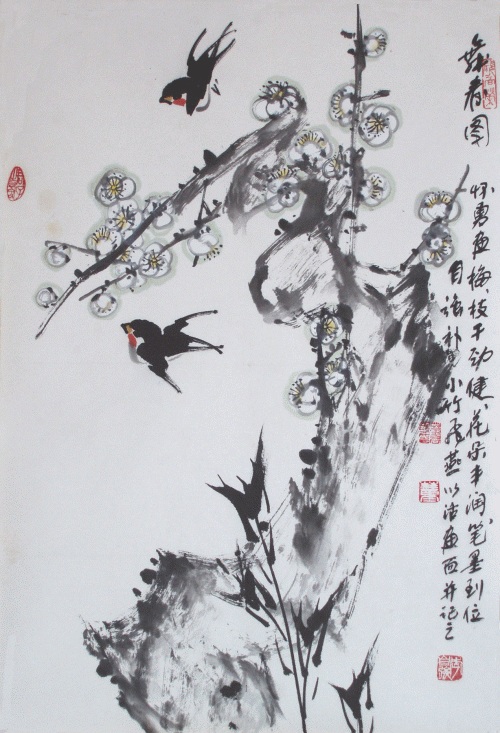 舞春图
怀勇画梅、枝干劲健、花朵丰润、笔墨到位
补小竹飞燕以活画面并记之